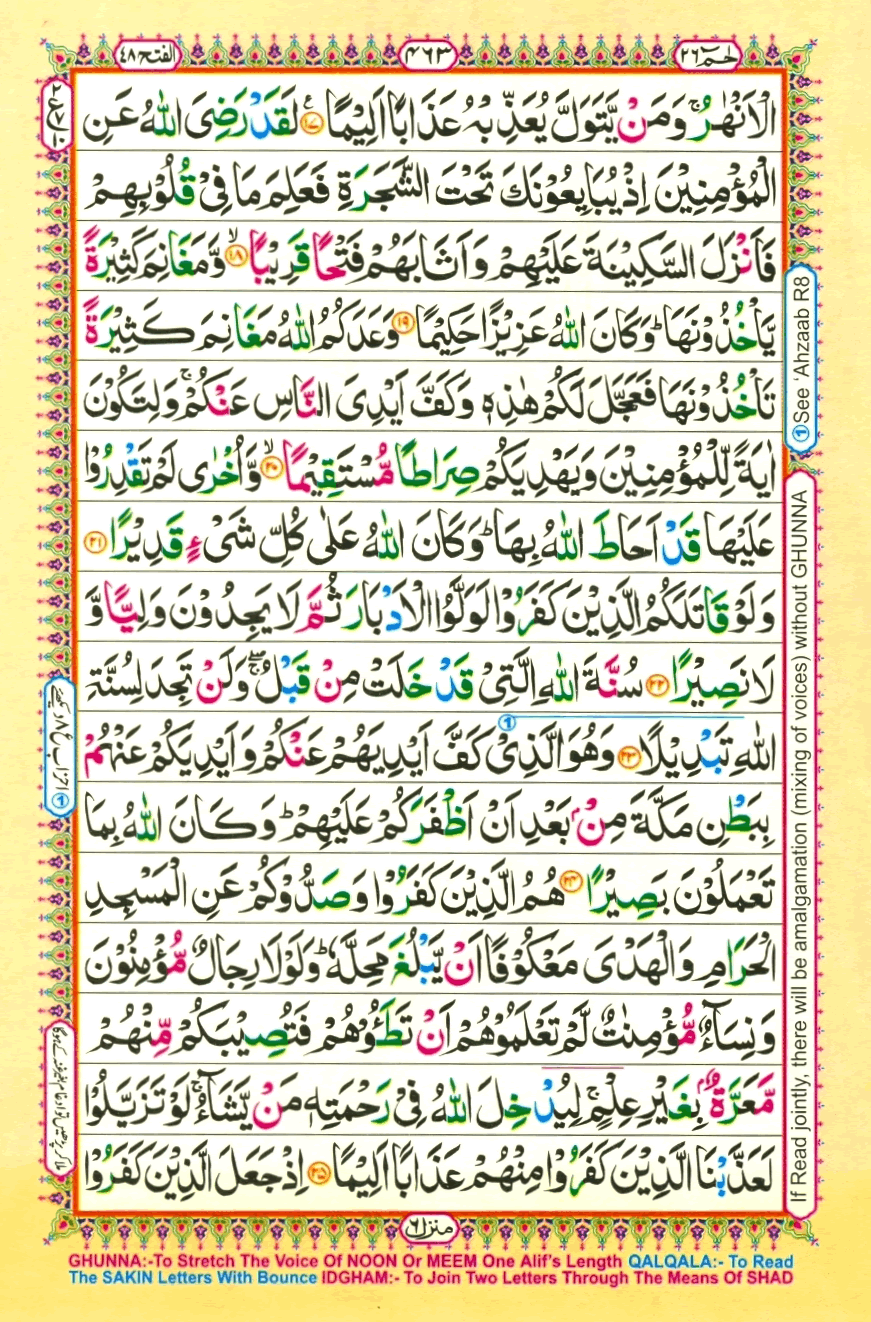 حٰمٓ ٢٦
٤٦٣
الفتح ٤٨
الْاَنْهٰرُ ۚ وَمَنْ يَّتَوَلَّ يُعَذِّبْهُ عَذَابًا اَلِيْمًا ١٧ لَقَدْ رَضِيَ اللّٰهُ عَنِ
الْمُؤْمِنِيْنَ اِذْ يُبَايِعُوْنَكَ تَحْتَ الشَّجَرَةِ فَعَلِمَ مَا فِيْ قُلُوْبِهِمْ
فَاَنْزَلَ السَّكِيْنَةَ عَلَيْهِمْ وَاَثَابَهُمْ فَتْحًا قَرِيْبًا ١٨ وَّمَغَانِمَ كَثِيْرَةً
يَّاْخُذُوْنَهَا ؕ وَكَانَ اللّٰهُ عَزِيْزًا حَكِيْمًا ١٩ وَعَدَكُمُ اللّٰهُ مَغَانِمَ كَثِيْرَةً
تَاْخُذُوْنَهَا فَعَجَّلَ لَكُمْ هٰذِهٖ وَكَفَّ اَيْدِيَ النَّاسِ عَنْكُمْ ۚ وَلِتَكُوْنَ
اٰيَةً لِّلْمُؤْمِنِيْنَ وَيَهْدِيَكُمْ صِرَاطًا مُّسْتَقِيْمًا ٢٠ وَّاُخْرٰى لَمْ تَقْدِرُوْا
عَلَيْهَا قَدْ اَحَاطَ اللّٰهُ بِهَا ؕ وَكَانَ اللّٰهُ عَلٰى كُلِّ شَيْءٍ قَدِيْرًا ٢١
وَلَوْ قَاتَلَكُمُ الَّذِيْنَ كَفَرُوْا لَوَلَّوُا الْاَدْبَارَ ثُمَّ لَا يَجِدُوْنَ وَلِيًّا وَّ
لَا نَصِيْرًا ٢٢ سُنَّةَ اللّٰهِ الَّتِيْ قَدْ خَلَتْ مِنْ قَبْلُ ۖۚ وَلَنْ تَجِدَ لِسُنَّةِ
اللّٰهِ تَبْدِيْلًا ٢٣ وَهُوَ الَّذِيْ كَفَّ اَيْدِيَهُمْ عَنْكُمْ وَاَيْدِيَكُمْ عَنْهُمْ
بِبَطْنِ مَكَّةَ مِنْۢ بَعْدِ اَنْ اَظْفَرَكُمْ عَلَيْهِمْ ؕ وَكَانَ اللّٰهُ بِمَا
تَعْمَلُوْنَ بَصِيْرًا ٢٤ هُمُ الَّذِيْنَ كَفَرُوْا وَصَدُّوْكُمْ عَنِ الْمَسْجِدِ
الْحَرَامِ وَالْهَدْيَ مَعْكُوْفًا اَنْ يَّبْلُغَ مَحِلَّهٗ ؕ وَلَوْلَا رِجَالٌ مُّؤْمِنُوْنَ
وَنِسَآءٌ مُّؤْمِنٰتٌ لَّمْ تَعْلَمُوْهُمْ اَنْ تَطَـُٔوْهُمْ فَتُصِيْبَكُمْ مِّنْهُمْ
مَّعَرَّةٌۢ بِغَيْرِ عِلْمٍ ۚ لِيُدْخِلَ اللّٰهُ فِيْ رَحْمَتِهٖ مَنْ يَّشَآءُ ۚ لَوْ تَزَيَّلُوْا
لَعَذَّبْنَا الَّذِيْنَ كَفَرُوْا مِنْهُمْ عَذَابًا اَلِيْمًا ٢٥ اِذْ جَعَلَ الَّذِيْنَ كَفَرُوْا
① See 'Ahzaab R8
If Read jointly, there will be amalgamation (mixing of voices) without GHUNNA
①
منزل ٦
GHUNNA:-To Stretch The Voice Of NOON Or MEEM One Alif's Length QALQALA:- To Read
The SAKIN Letters With Bounce IDGHAM:- To Join Two Letters Through The Means Of SHAD